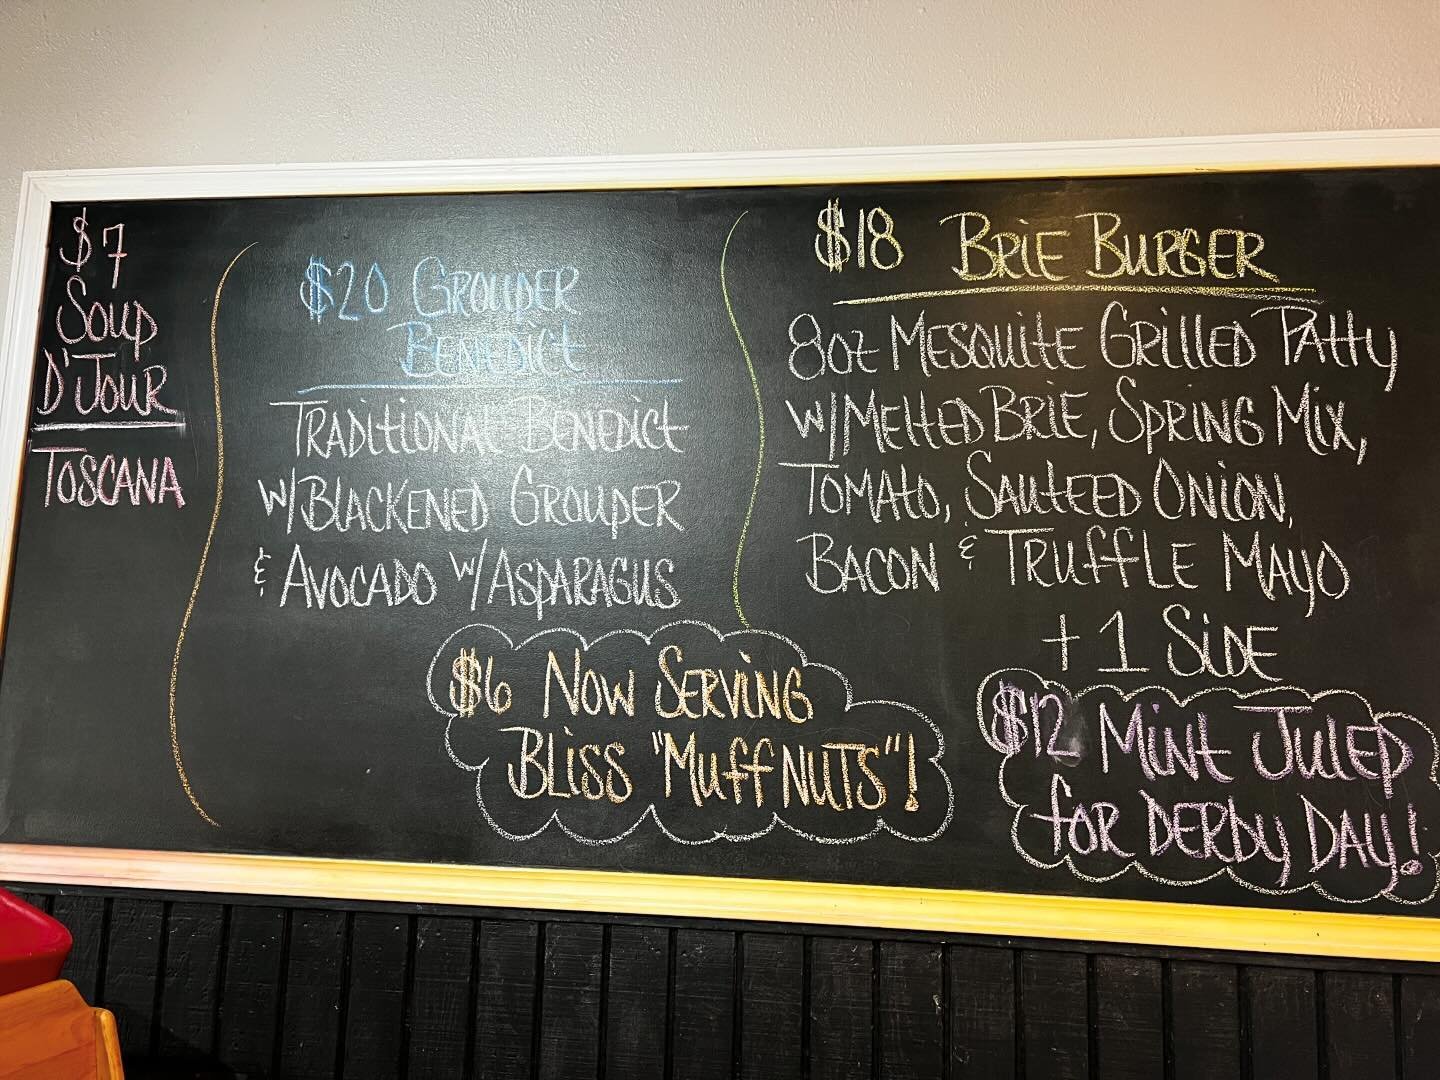 $7
SOUP
D'JOUR
TOSCANA
$20 GROUPER
BENEDICT
TRADITIONAL BENEDICT
W/BLACKENED GROUPER
& AVOCADO W/ASPARAGUS
$18 BRIE BURGER
8OZ MESQUITE GRILLED PATTY
W/MELTED BRIE, SPRING MIX,
TOMATO, SAUTEED ONION,
BACON & TRUFFLE MAYO
+ 1 SIDE
$6 NOW SERVING
BLISS "MUFFNUTS"!
$12 MINT JULEP
FOR DERBY DAY!